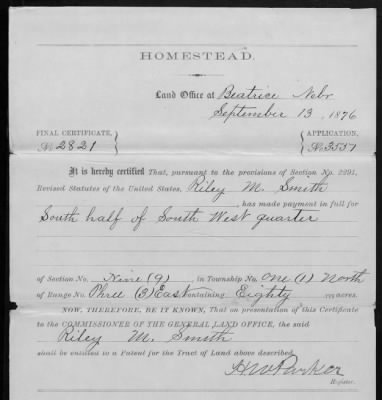 HOMESTEAD.
Land Office at Beatrice Nebr
September 13, 1876
FINAL CERTIFICATE, APPLICATION,
No 2821 No 3557
It is hereby certified That, pursuant to the provisions of Section No. 2291,
Revised Statutes of the United States, Riley M. Smith
, has made payment in full for
South half of South West quarter
of Section No. Nine (9) in Township No. One (1) North
of Range No. Three (3) East containing Eighty acres.
NOW, THEREFORE, BE IT KNOWN, That on presentation of this Certificate
to the COMMISSIONER OF THE GENERAL LAND OFFICE, the said
Riley M. Smith
shall be entitled to a Patent for the Tract of Land above described.
H W Parker
Register.